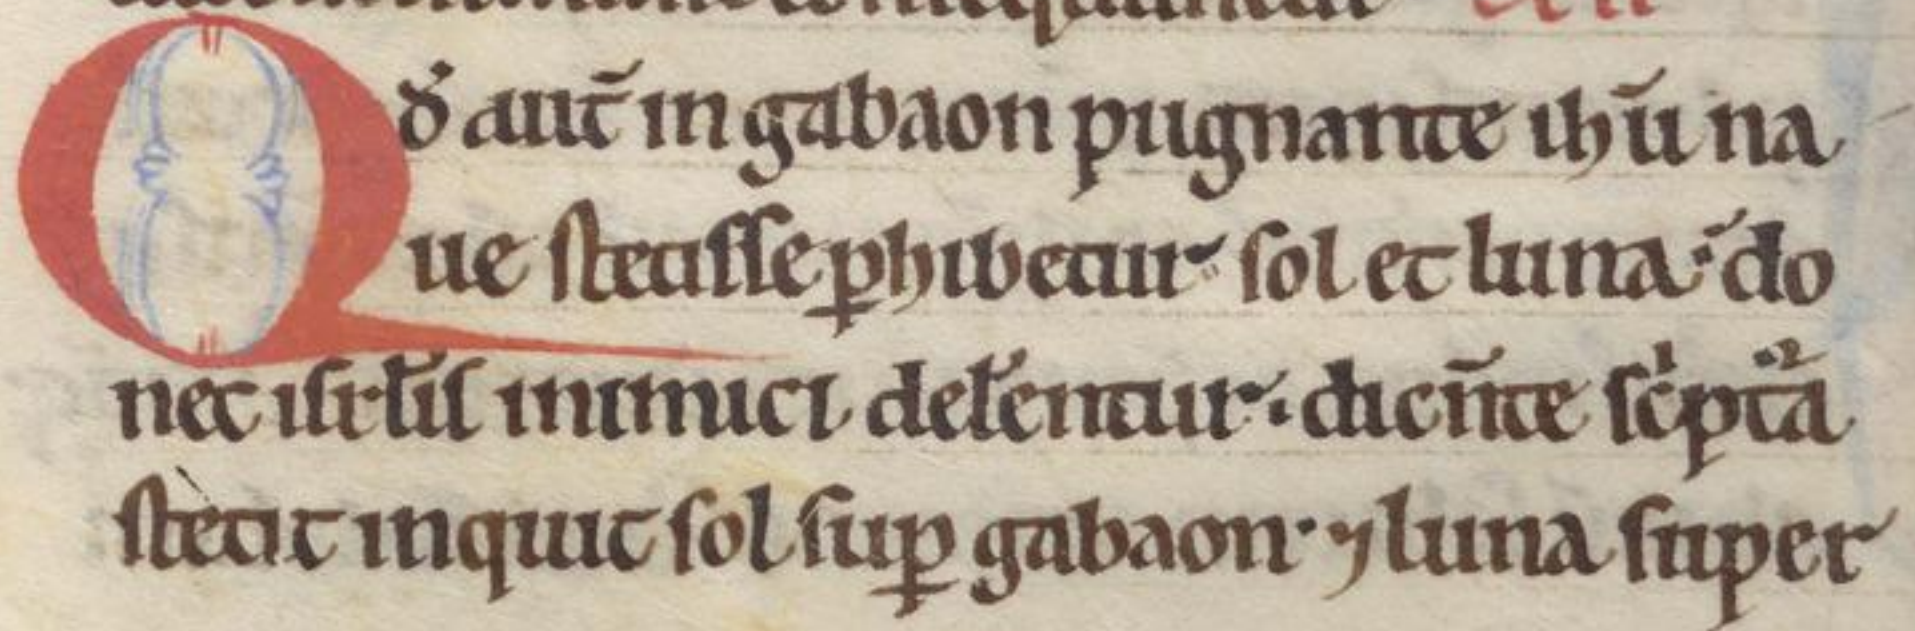 Qđ aut̄ in gabaon pugnante ihū na
ue stetisse ꝑhibetur sol et luna do
nec isrł'is inimici del'entur. dicn̄te sc'pta͛
stetit inquit sol suꝑ gabaon· ⁊ luna super